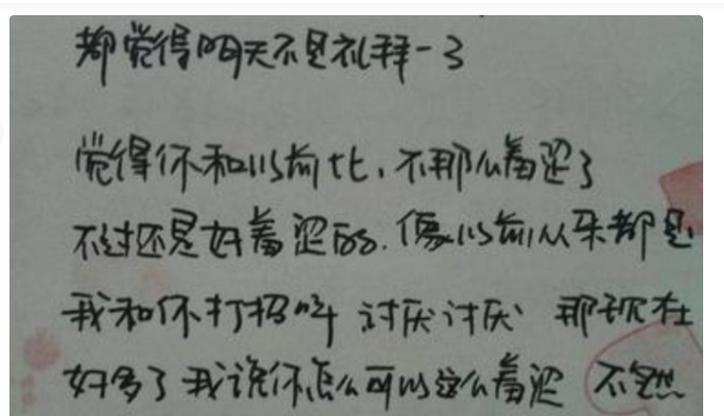 都觉得明天不是礼拜一了
觉得你和以前比，不那么羞涩了
不过还是好羞涩的.像以前从来都是
我和你打招呼 讨厌讨厌 那现在
好多了 我说你怎么可以这么羞涩 不然